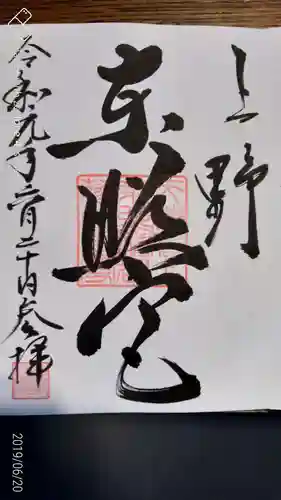 上野
東照宮
令和元年六月二十日参拝
2019/06/20